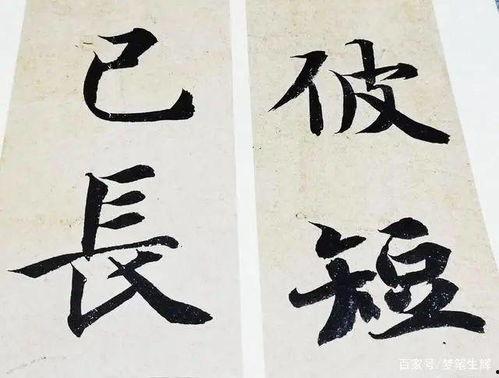 彼短
己長
百家号/梦笔生辉